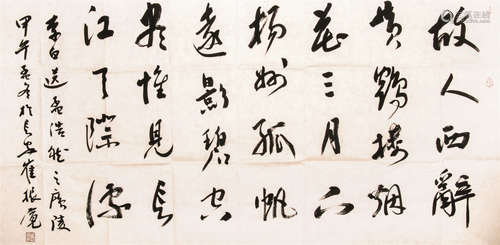 故人西辭
黄鶴樓烟
花三月下
楊州孤帆
遠影碧空
盡惟見長
江天際流
李白送孟浩然之廣陵
甲午於長安崔振寬